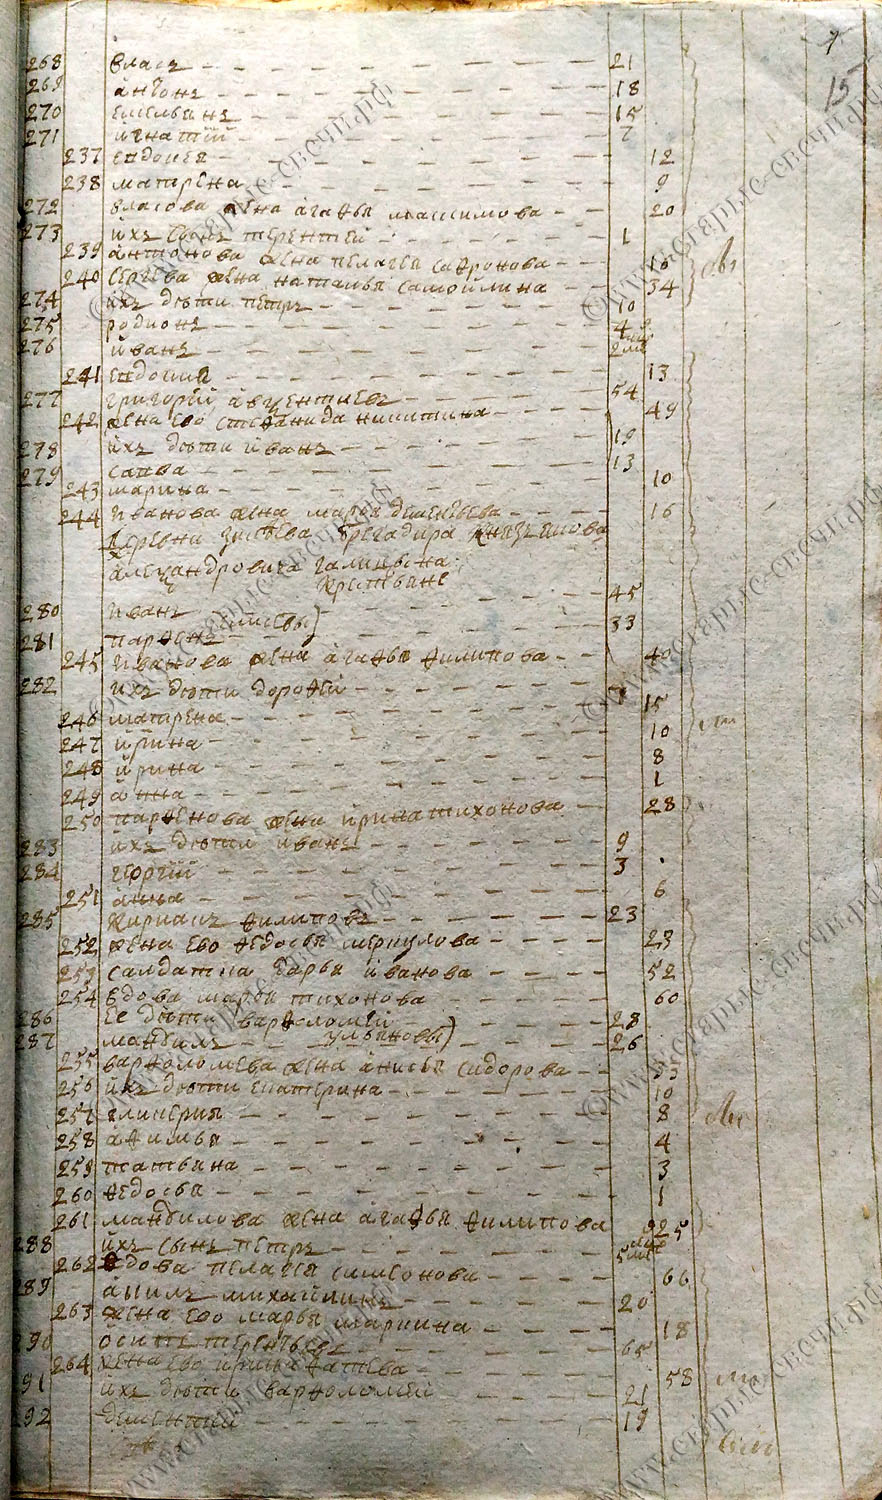 7
15
268 власъ 21
269 антонъ 18
270 емельянъ 15
271 игнатий 7
237 евдокея 12
238 матрена 9
272 власова жена агафья максимова 20
273 ихъ сынъ терентей 1
239 антонова жена пелагея сафронова
240 сергева жена наталья самойлина 34
274 ихъ дѣти петръ 10
275 родионъ 4
276 иванъ 2
241 евдокия 13
277 григорий авксентиевъ 54
242 жена ево стефанида никитина 49
278 ихъ дѣти иванъ 19
279 савва 13
243 марина 10
244 иванова жена марья дементьева 16
деревни брегадира князь
александровича галицына
крестьяне
280 иванъ 45
281 парфенъ 33
245 иванова жена агафья филипова 40
282 ихъ дѣти дорофей
246 матрена 15
247 ирина 10
248 ирина 8
249 анна 1
250 парфенова жена ирина тихонова 28
283 ихъ дѣти иванъ 9
284 георгий 3
251 анна 6
285 кирианъ филиповъ 23
252 жена ево федосья меркулова 23
253 салдатка дарья иванова 52
254 вдова марья тихонова 60
286 ее дѣти варфоломей 28
287 мануилъ ульяновы) 26
255 варфоломева жена анисья сидорова 33
256 ихъ дѣти екатерина 10
257 гликерия 8
258 афимья 4
259 татьяна 3
260 федосья 1
261 мануилова жена агафья филипова 25
288 ихъ сынъ петръ 5
262 вдова пелагея симеонова 66
289 акимъ михайлинъ 20
263 жена ево марья маркина 18
290 осипъ терентьевъ 65
264 жена ево ирина 58
291 ихъ дѣти варфоломей 21
292 дементей 19
©www.старые-свечи.рф